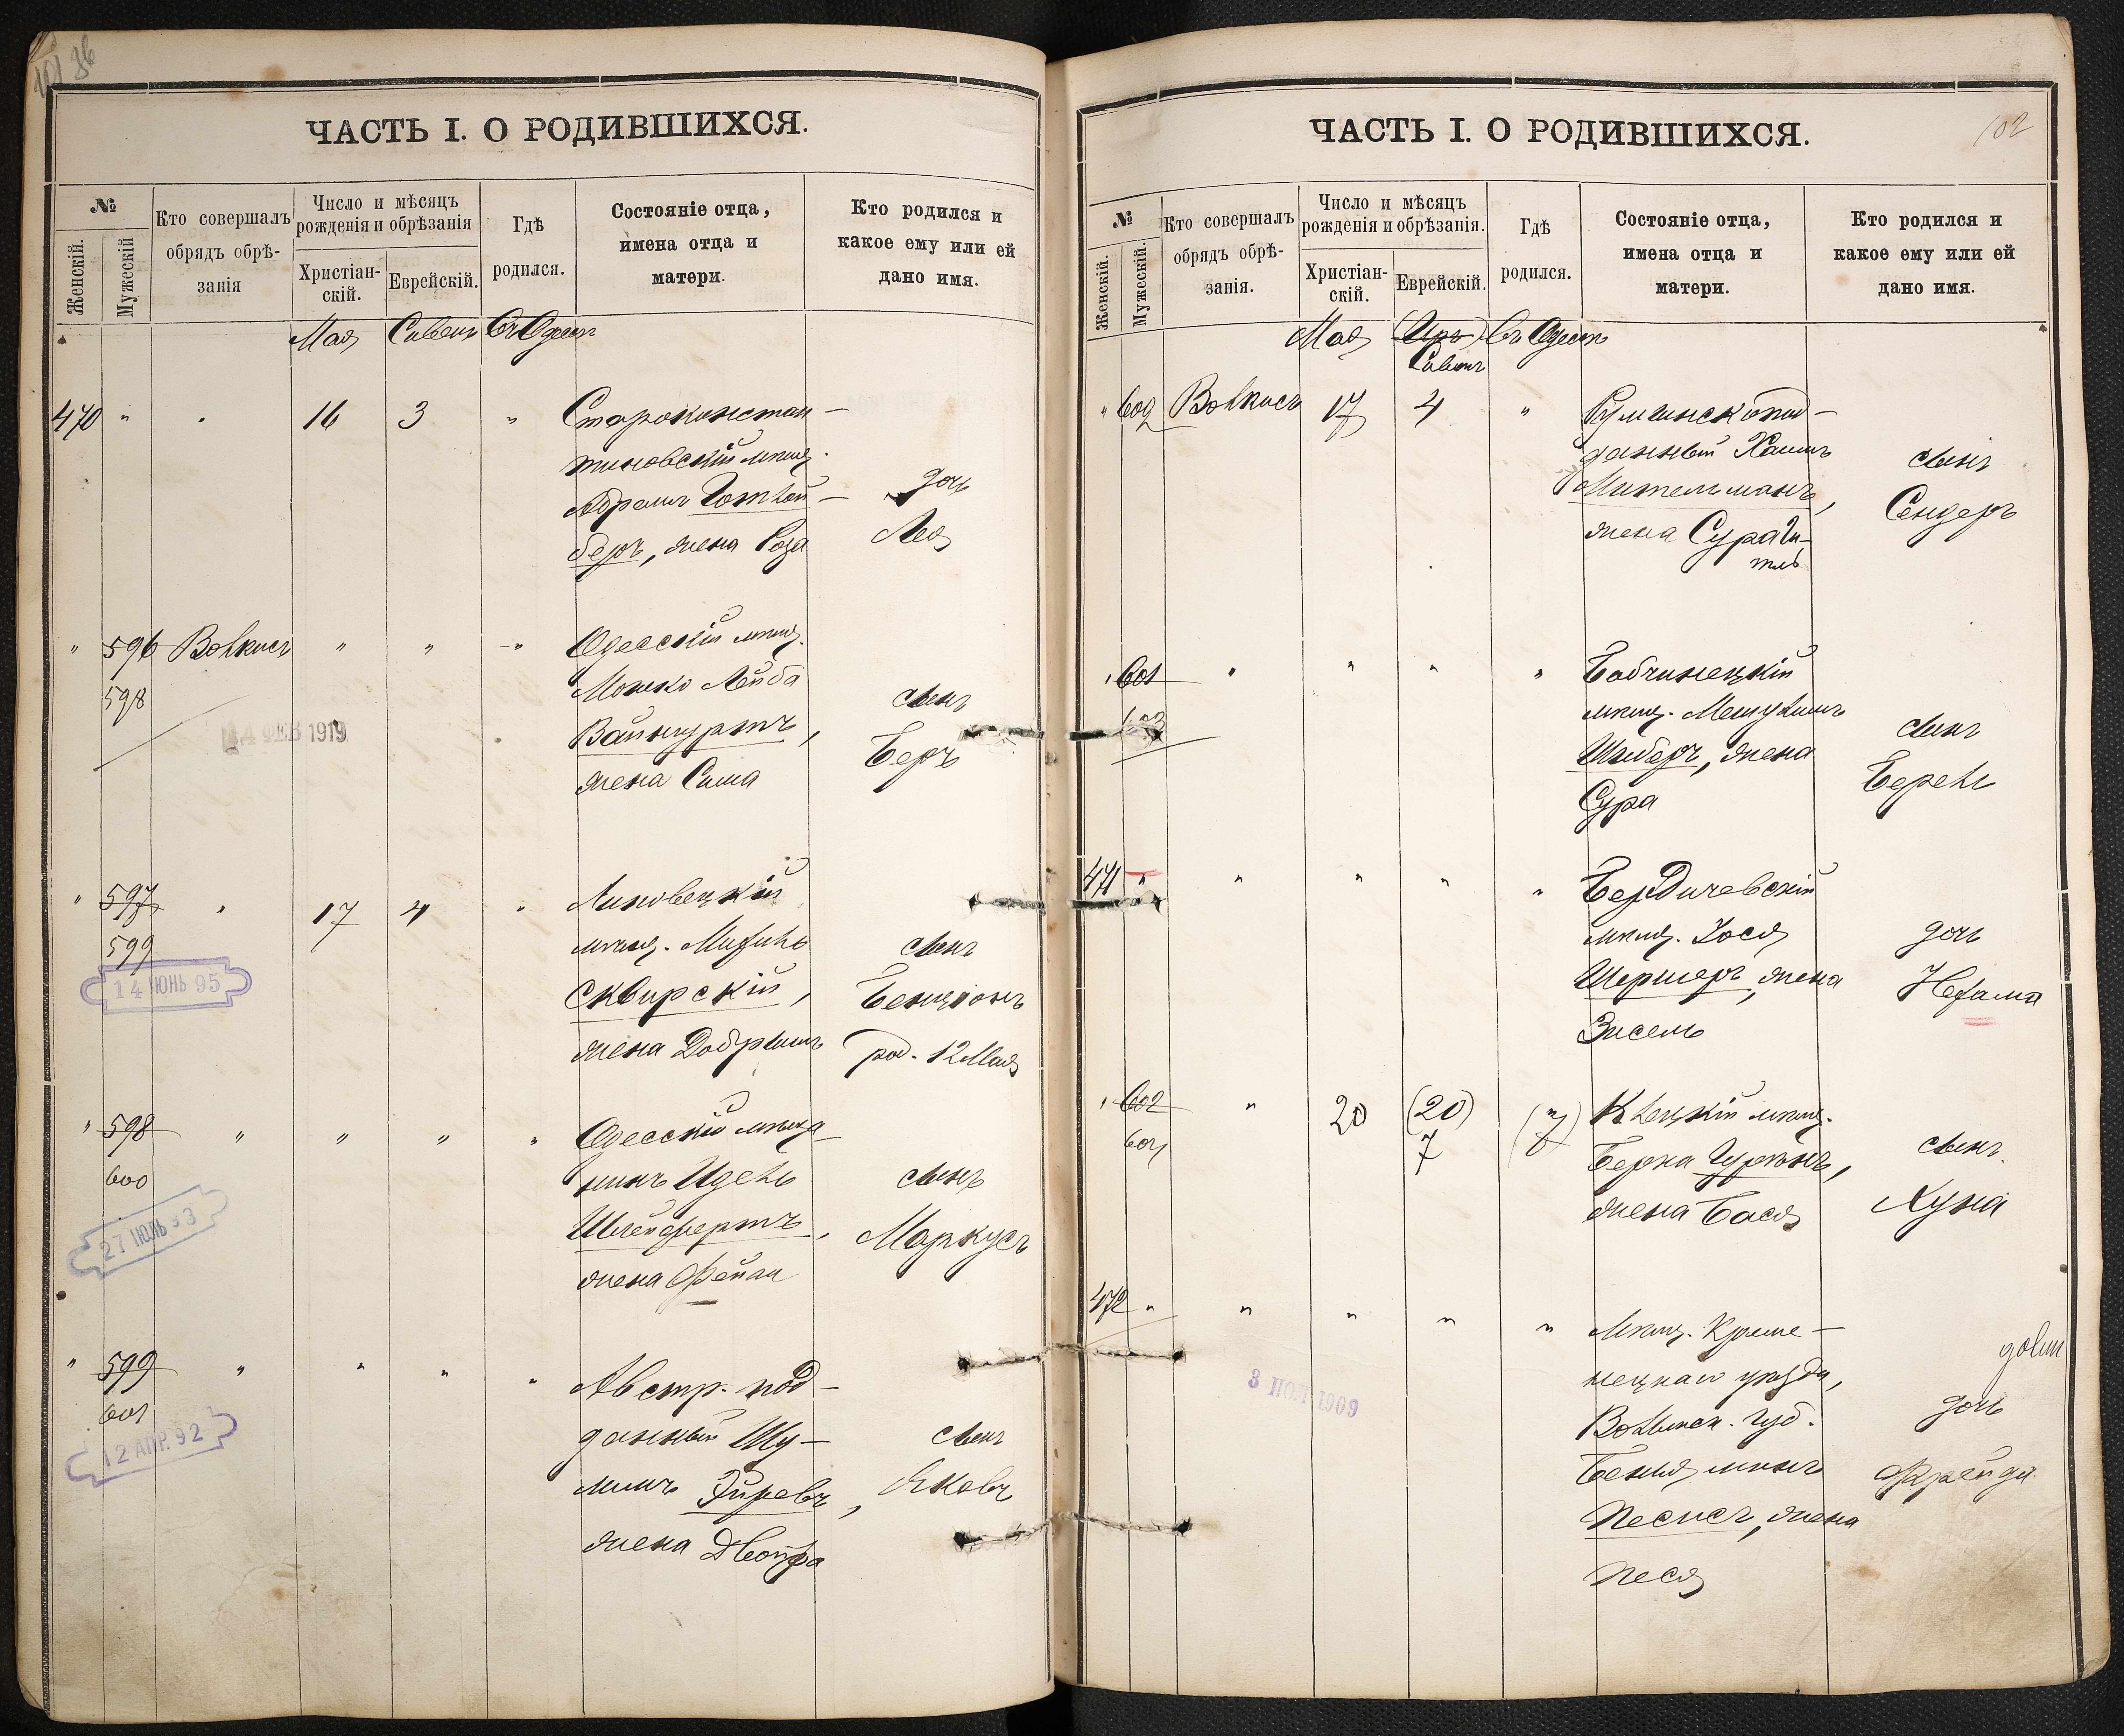 101 36
ЧАСТЬ I. О РОДИВШИХСЯ.
№
Женскій.
Мужескій
Кто совершалъ
обрядъ обрѣ-
занія
Число и мѣсяцъ
рожденія и обрѣзанія
Христіан-
скій.
Еврейскій.
Гдѣ
родился.
Состояніе отца,
имена отца и
матери.
Кто родился и
какое ему или ей
дано имя.
Мая Сивенъ Въ Одессѣ
470 " " 16 3 " Староконстан-
тиновскій мѣщ.
Абрамъ Готлой-
беръ, жена Роза
дочь
Лея
" 596 Волкисъ " " " Одесскій мѣщ.
598
Мошко Лейба
Вайнгуртъ,
жена Сима
сынъ
Беръ
14 ФЕВ 1919
" 597 " 17 4 " Липовецкій
599
мѣщ. Михиль
Сквирскій,
жена Добрышъ
сынъ
Бенціонъ
род. 12 Мая
14 ІЮНЬ 95
" 598 " " " " Одесскій мѣща-
600
нинъ Идель
Шлейфертъ,
жена Фейга
сынъ
Маркусъ
27 ІЮЛЬ 93
" 599 " " " " Австр. под-
601
данный Шу-
лимъ
жена Двойра
сынъ
Яковъ
12 АПР. 92
102
ЧАСТЬ I. О РОДИВШИХСЯ.
№
Женскій.
Мужескій.
Кто совершалъ
обрядъ обрѣ-
занія.
Число и мѣсяцъ
рожденія и обрѣзанія.
Христіан-
скій.
Еврейскій.
Гдѣ
родился.
Состояніе отца,
имена отца и
матери.
Кто родился и
какое ему или ей
дано имя.
Мая (Иръ) Въ Одессѣ
Сивенъ
" 602 Волкисъ 17 4 " Румынскопод-
данный Хаимъ
Мительманъ,
жена Сура Ги-
тль
сынъ
Сендеръ
" 601 " " " " Бабчинецкій
603
мѣщ. Мешулимъ
Шиберъ, жена
Сура
сынъ
Берель
471 " " " " " Бердичевскій
мѣщ. Іося
Шернеръ, жена
Зисель
дочь
Нехама
" 602 " 20 (20) (") Клецкій мѣщ.
604 7
Берка Гурвичъ,
жена Бася
сынъ
Хуна
472 " " " " " Мѣщ. Креме-
нецкаго уѣзда,
Волынск. губ.
Беніяминъ
Песисъ, жена
Песя
дочь
Фрейда
3 НОЯ 1909